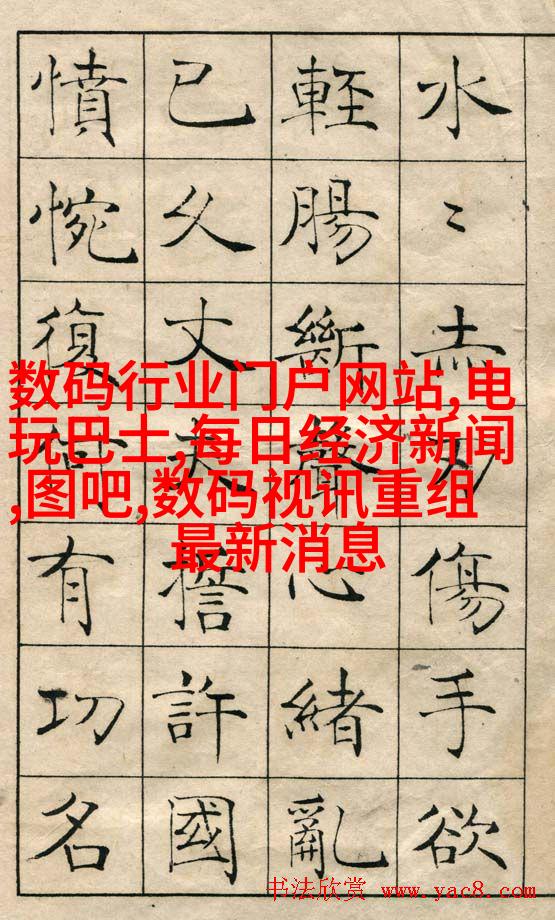 水〻赤刃傷手欲
輕腸斷聲心緒亂
已久丈夫誓許國
憤惋復何有功名
数码行业门户网站,电
玩巴士,每日经济新闻
,图吧,数码视讯重组
最新消息
书法欣赏 www.yac8.com